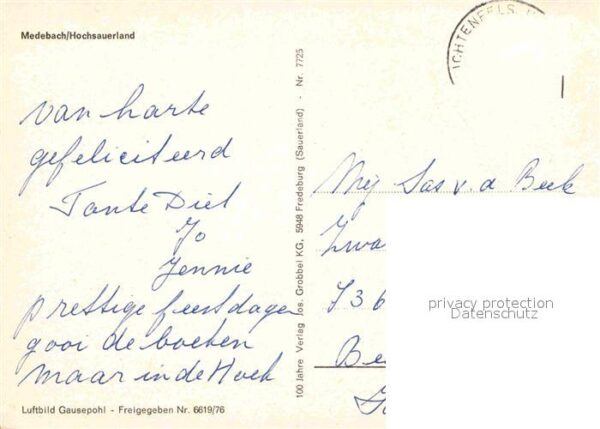 Medebach/Hochsauerland
van harte
gefeliciteerd
Tante Diet
Jo
Jennie
prettige feestdagen
gooi de boeken
maar in de Hoek
Luftbild Gausepohl - Freigegeben Nr. 6619/76
100 Jahre Verlag Jos. Grobbel KG, 5948 Fredeburg (Sauerland) - Nr. 7725
ICHTENFELS
Mej Sas v. d Beek
Zwa
736
Be
privacy protection
Datenschutz